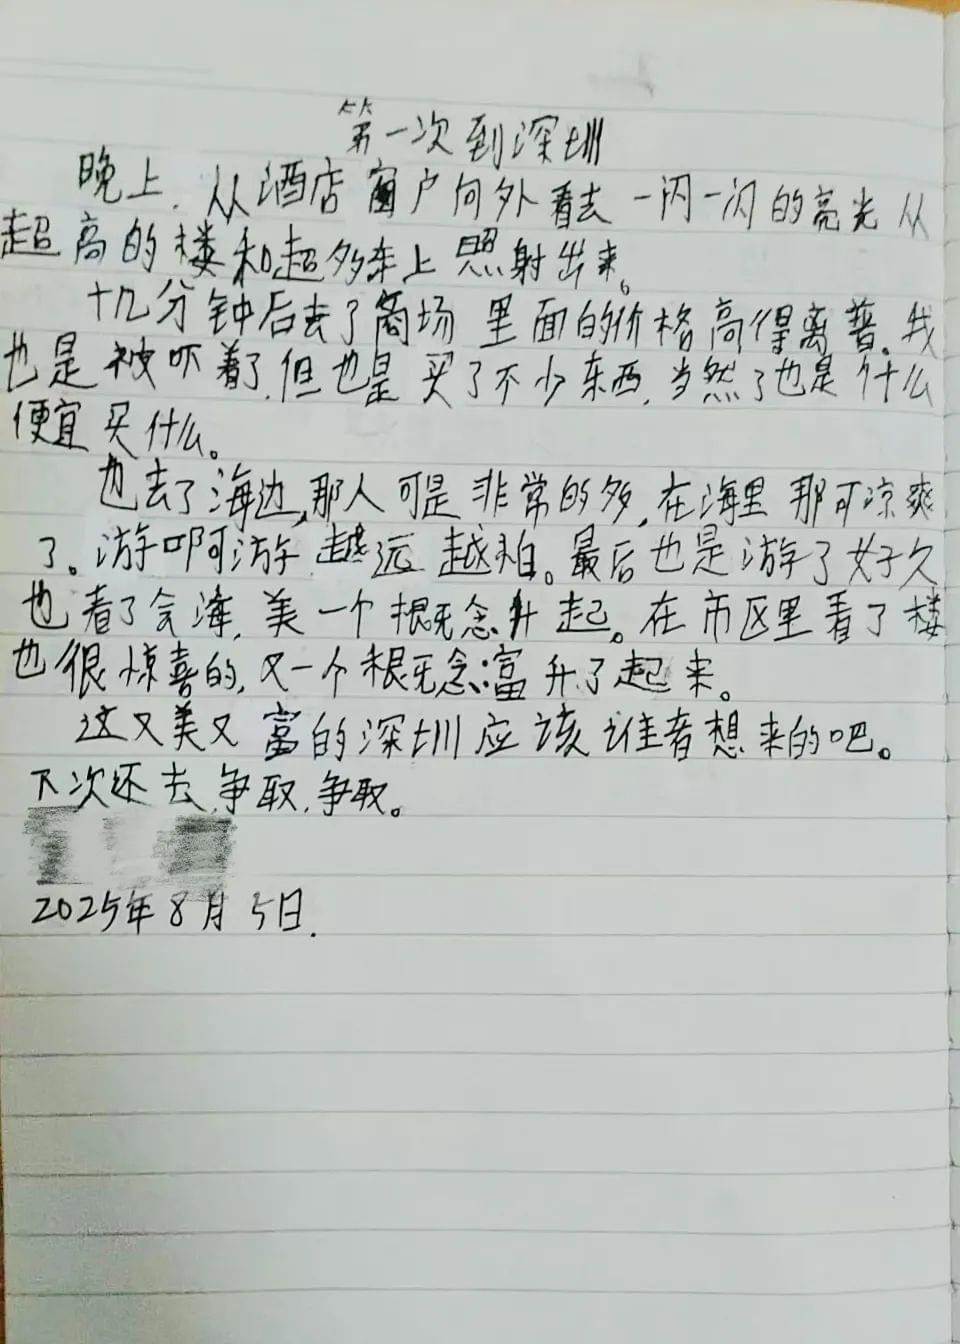 第一次到深圳
晚上.从酒店窗户向外看去一闪一闪的亮光从
超高的楼和超多车上照射出来。
十几分钟后去了商场里面的价格高得离普.我
也是被吓着了,但也是买了不少东西,当然了也是什么
便宜买什么。
也去了海边,那人可是非常的多,在海里那可凉爽
了。游啊游越远越怕。最后也是游了好久
也看了会海,美一个概念升起。在市区里看了楼
也很惊喜的,又一个概念:富升了起来。
这又美又富的深圳应该谁者想来的吧。
下次还去,争取,争取。
2025年8月5日.